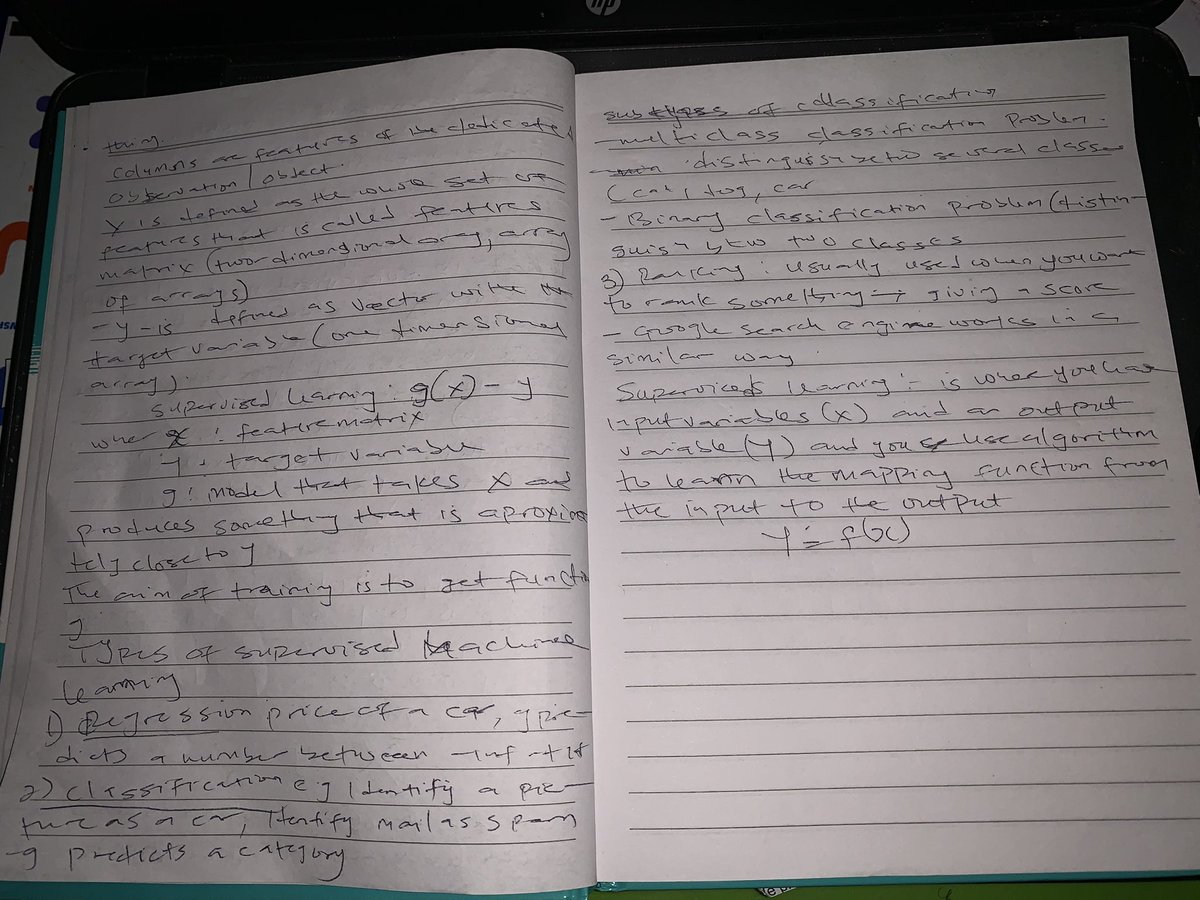 thing.
columns are features of the dedicated
observation / object.
X is defined as the whole set of
features that is called features
matrix (two dimensional array, array
of arrays)
- y - is defined as vector with
target variable (one dimensional
array).
supervised learning : g(x) - y
wher x : feature matrix
y : target variable
g : model that takes X and
produces something that is aproxima
tely close to y
The aim of training is to get function
g
Types of supervised Machine
learning
1) Regression price of a car, g pre-
dicts a number between -inf + inf
2) classification eg Identify a pic-
ture as a car, Identify mail as spam
-g predicts a category
subtypes of classification
- multiclass classification Problem.
distinguish several classes
(cat, dog, car
- Binary classification problem (distin-
guish btw two classes
3) Ranking : usually used when you want
to rank something → giving a score
- Google search engine works in a
similar way.
Supervised learnig :- is when you hav
input variables (x) and an output
variable (y) and you use algorithm
to learn the mapping function from
the input to the output
Y = f(x)
hp